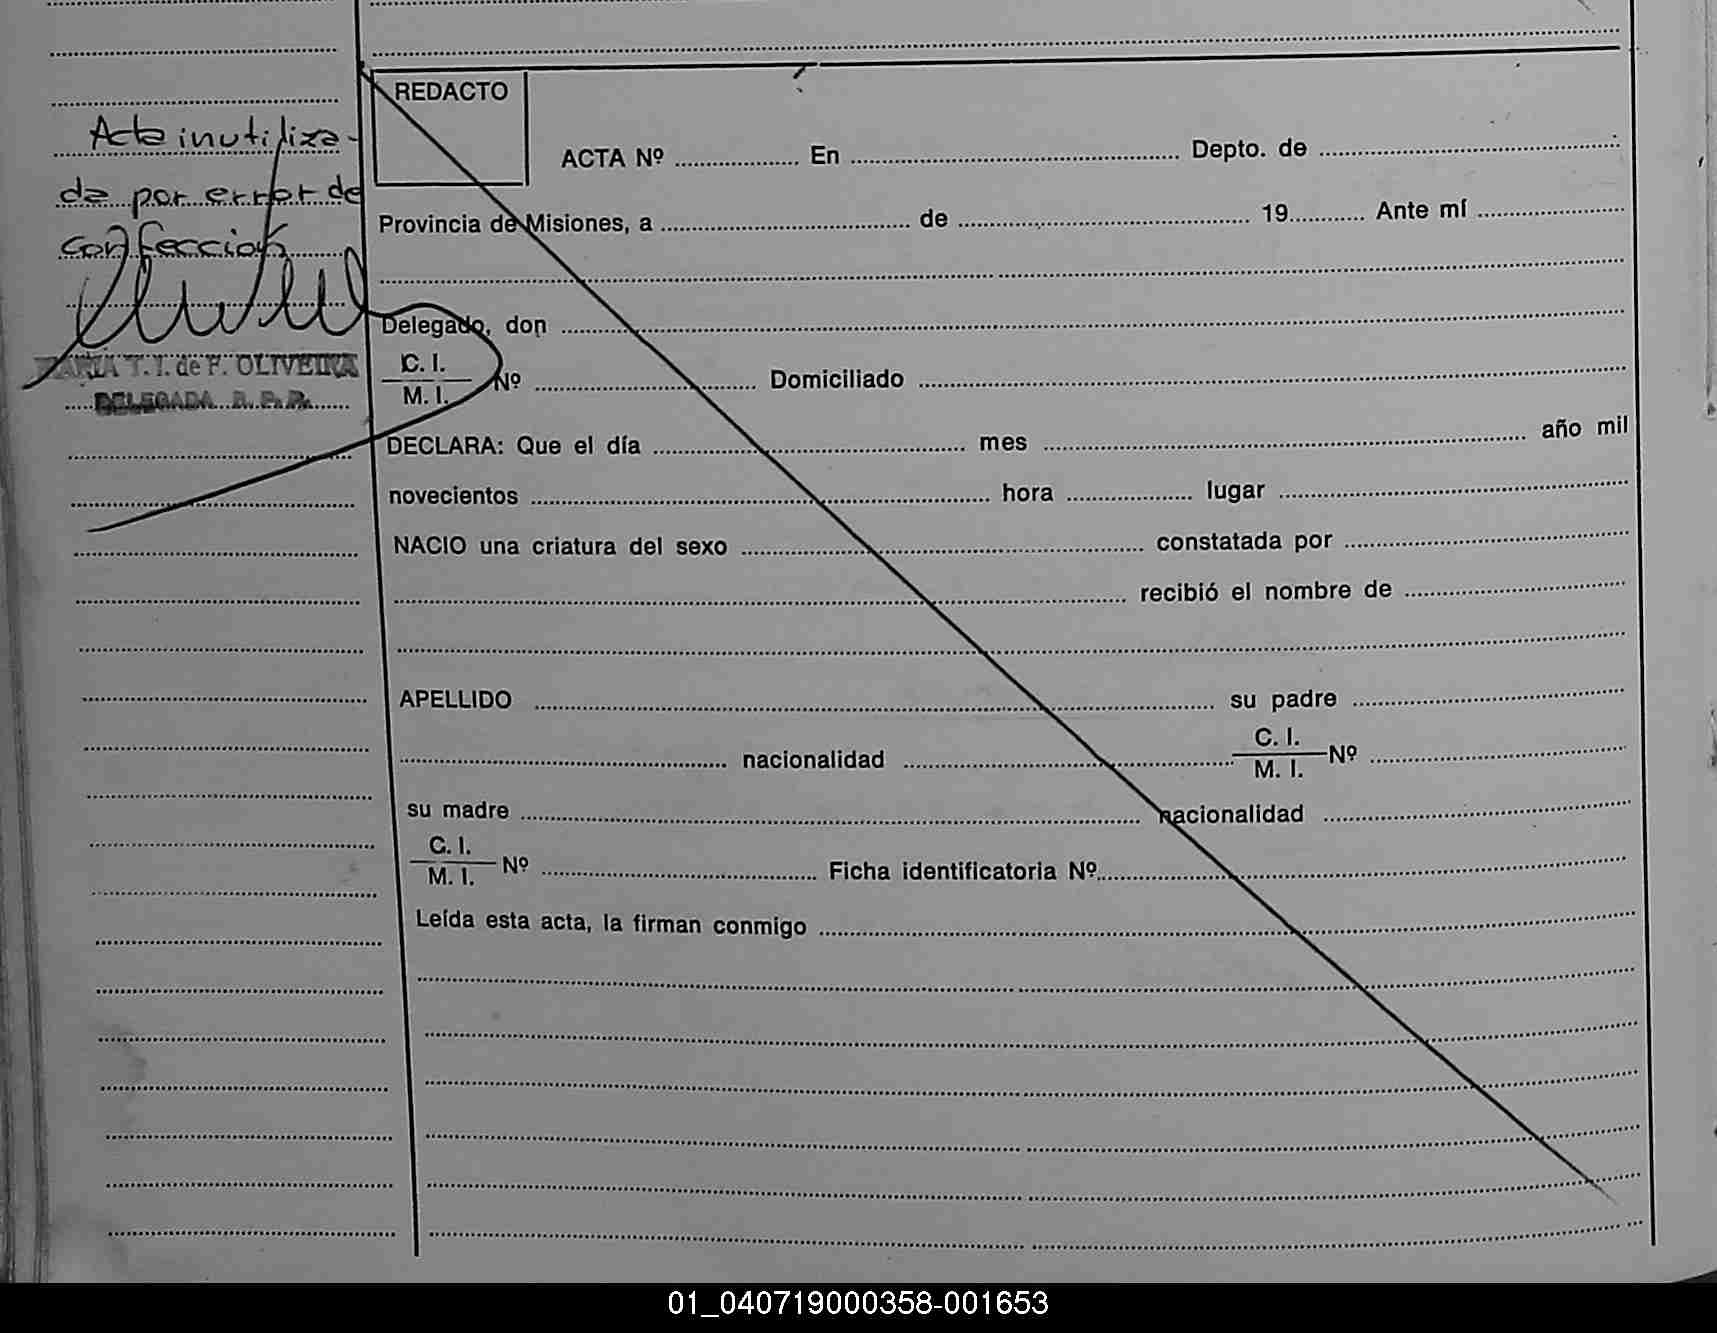 Acta inutiliza-
da por error de
confeccion
MARIA T. I. de F. OLIVEIRA
DELEGADA R. P. P.
REDACTO
ACTA Nº En Depto. de
Provincia de Misiones, a de 19 Ante mí
Delegado, don
C. I.
M. I. Nº Domiciliado
DECLARA: Que el día mes año mil
novecientos hora lugar
NACIO una criatura del sexo constatada por
recibió el nombre de
APELLIDO su padre
nacionalidad C. I.
M. I. Nº
su madre nacionalidad
C. I.
M. I. Nº Ficha identificatoria Nº
Leída esta acta, la firman conmigo
01_040719000358-001653